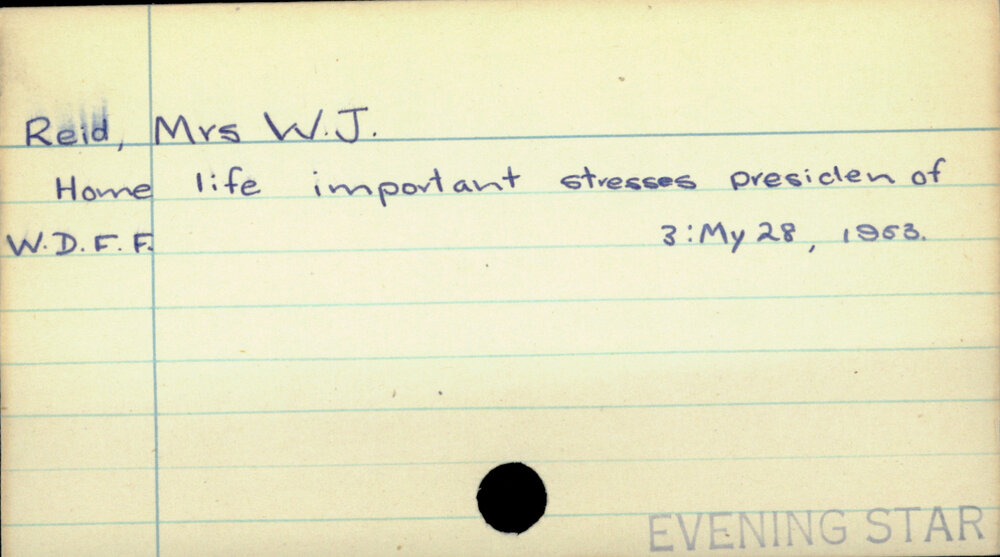 Reid, Mrs W.J.
Home life important stresses presiden of
W.D.F.F. 3:My 28, 1953.
EVENING STAR